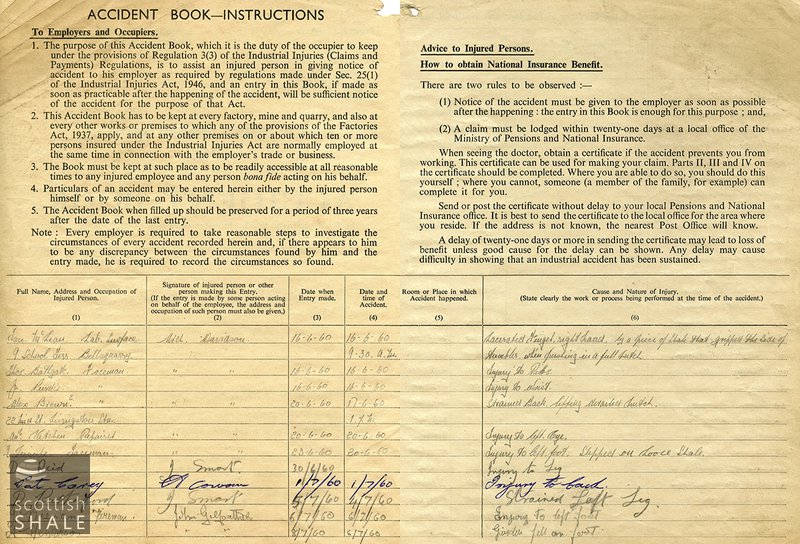 ACCIDENT BOOK—INSTRUCTIONS
To Employers and Occupiers.
1. The purpose of this Accident Book, which it is the duty of the occupier to keep
under the provisions of Regulation 3(3) of the Industrial Injuries (Claims and
Payments) Regulations, is to assist an injured person in giving notice of
accident to his employer as required by regulations made under Sec. 25(1)
of the Industrial Injuries Act, 1946, and an entry in this Book, if made as
soon as practicable after the happening of the accident, will be sufficient
notice of the accident for the purpose of that Act.
2. This Accident Book has to be kept at every factory, mine and quarry, and also at
every other works or premises to which any of the provisions of the Factories
Act, 1937, apply, and at any other premises on or about which ten or more
persons insured under the Industrial Injuries Act are normally employed at
the same time in connection with the employer's trade or business.
3. The Book must be kept at such place as to be readily accessible at all reasonable
times to any injured employee and any person bona fide acting on his behalf.
4. Particulars of an accident may be entered herein either by the injured person
himself or by someone on his behalf.
5. The Accident Book when filled up should be preserved for a period of three years
after the date of the last entry.
Note : Every employer is required to take reasonable steps to investigate the
circumstances of every accident recorded herein and, if there appears to him
to be any discrepancy between the circumstances found by him and the
entry made, he is required to record the circumstances so found.
Advice to Injured Persons.
How to obtain National Insurance Benefit.
There are two rules to be observed :—
(1) Notice of the accident must be given to the employer as soon as possible
after the happening : the entry in this Book is enough for this purpose ; and,
(2) A claim must be lodged within twenty-one days at a local office of the
Ministry of Pensions and National Insurance.
When seeing the doctor, obtain a certificate if the accident prevents you from
working. This certificate can be used for making your claim. Parts II, III and IV on
the certificate should be completed. Where you are able to do so, you should do this
yourself ; where you cannot, someone (a member of the family, for example) can
complete it for you.
Send or post the certificate without delay to your local Pensions and National
Insurance office. It is best to send the certificate to the local office for the area where
you reside. If the address is not known, the nearest Post Office will know.
A delay of twenty-one days or more in sending the certificate may lead to loss of
benefit unless good cause for the delay can be shown. Any delay may cause
difficulty in showing that an industrial accident has been sustained.
Full Name, Address and Occupation of
Injured Person.
(1)
Signature of injured person or other
person making this Entry.
(If the entry is made by some person acting
on behalf of the employee, the address and
occupation of such person must also be given.)
(2)
Date when
Entry made.
(3)
Date and
time of
Accident.
(4)
Room or Place in which
Accident happened.
(5)
Cause and Nature of Injury.
(State clearly the work or process being performed at the time of the accident.)
(6)
McLean Surface 16-6-60 16-6-60 Lacerated Finger, right hand. by a piece of Shale that gripped the side of
School Terr 9-30 when pushing in a full hutch.
" " 16-6-60 16-6-60 Injury to Ribs.
" " 16-6-60 16-6-60 Injury to wrist.
Alex Brown " " " 20-6-60 17-6-60 Strained Back, lifting derailed hutch.
St. Livingston Stn.
" " 20-6-60 20-6-60 Injury to left Eye.
" " 23-6-60 20-6-60 Injury to left foot. Stepped on Loose Shale.
Reid J Smart 30/6/60 Injury to Leg
Pat Carey Cowan 1/7/60 1/7/60 Injury to back
J Smart Strained Left Leg.
Fireman John 6/7/60 6/7/60 Injury to left foot
" " 8/7/60 8/7/60 Girder fell on foot.
scottish
SHALE